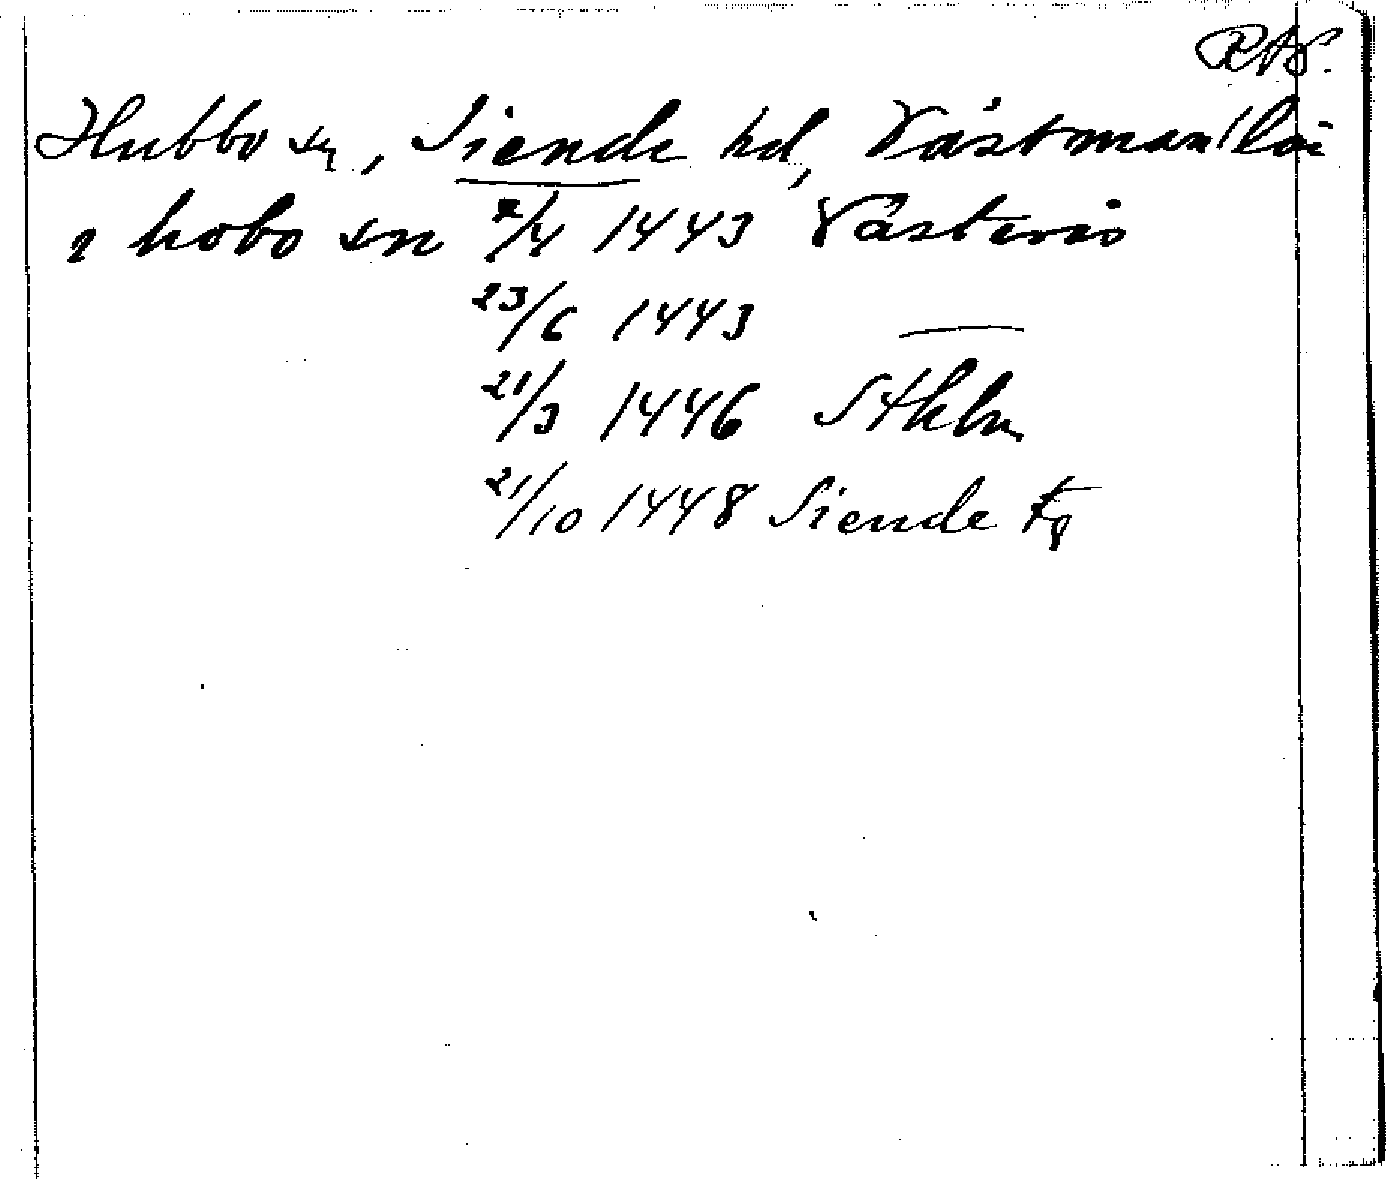 RAP.
Hubbo sn, Siende hd, Västmanl län
i hobo sn 2/4 1443 Västerås
23/6 1443 —
21/3 1446 Sthlm
21/10 1448 Siende tg